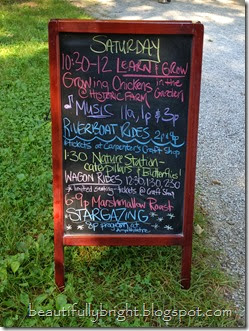 SATURDAY
10:30-12 LEARN & GROW
Growing Chickens in the Garden
HISTORIC FARM
MUSIC 11a, 1p & 3p
RIVERBOAT RIDES 2p & 4p
tickets at Carpenter's Craft Shop
1:30 Nature Station-
caterpillars & Butterflies!
WAGON RIDES 12:30, 1:30, 2:30
*limited seating - tickets @ Craft Shop
6-9p Marshmallow Roast
STARGAZING
8p program at
Amphitheatre
beautifullybright.blogspot.com